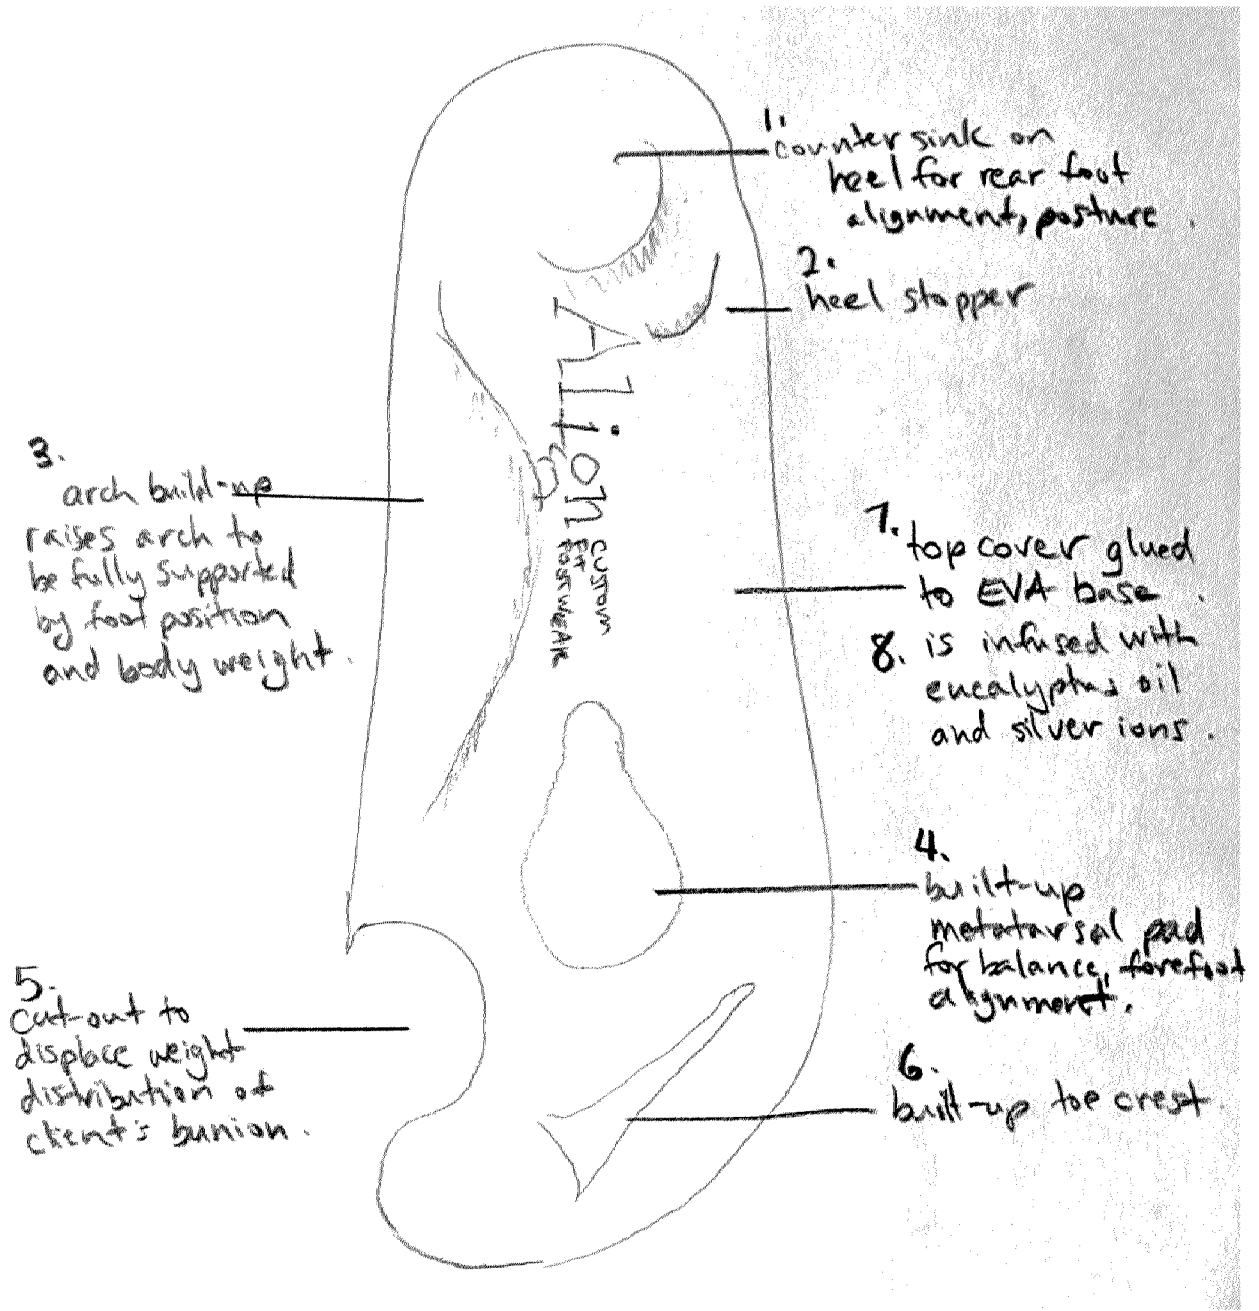 1.
counter sink on
heel for rear foot
alignment, posture.
2.
heel stopper
Align
CUSTOM
FIT
FOOTWEAR
3.
arch build-up
raises arch to
be fully supported
by foot position
and body weight.
7. top cover glued
to EVA base.
8. is infused with
eucalyptus oil
and silver ions.
4.
built-up
metatarsal pad
for balance, forefoot
alignment.
5.
cut-out to
displace weight
distribution of
client's bunion.
6.
built-up toe crest.